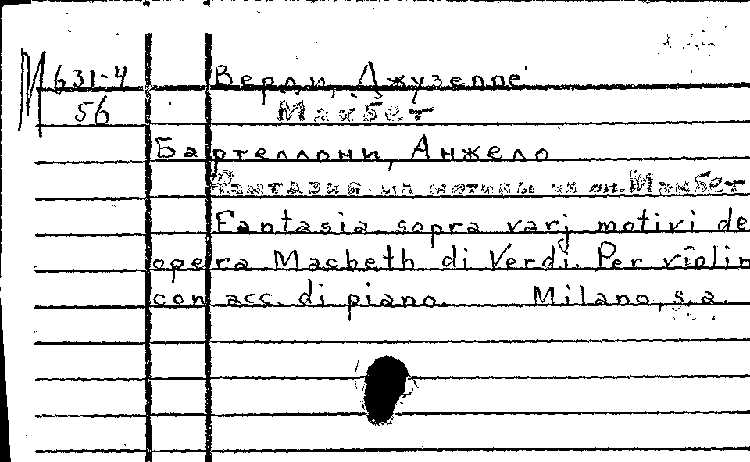 М 631-4 Верди, Джузеппе
56 Макбет
Бартеллони, Анжело
Фантазия на мотивы из оп. Макбет
Fantasia sopra varj motivi de
opera Macbeth di Verdi. Per violin
con acc. di piano. Milano, s.a.